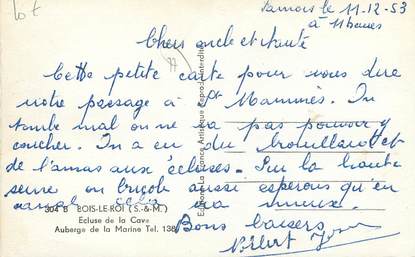 Samois le 11-12-53
à 11 heures
Chers oncle et tante
Cette petite carte pour vous dire
notre passage à St Mammès. On
tombe mal on ne va pas pouvoir y
coucher. On a eu du brouillard et
de l'amas aux écluses. Sur la haute
seine on bricole aussi espérons qu'en
canal cela va mieux.
Bons baisers
304 B BOIS-LE-ROI (S.-&-M.)
Ecluse de la Cave
Auberge de la Marine Tel. 138